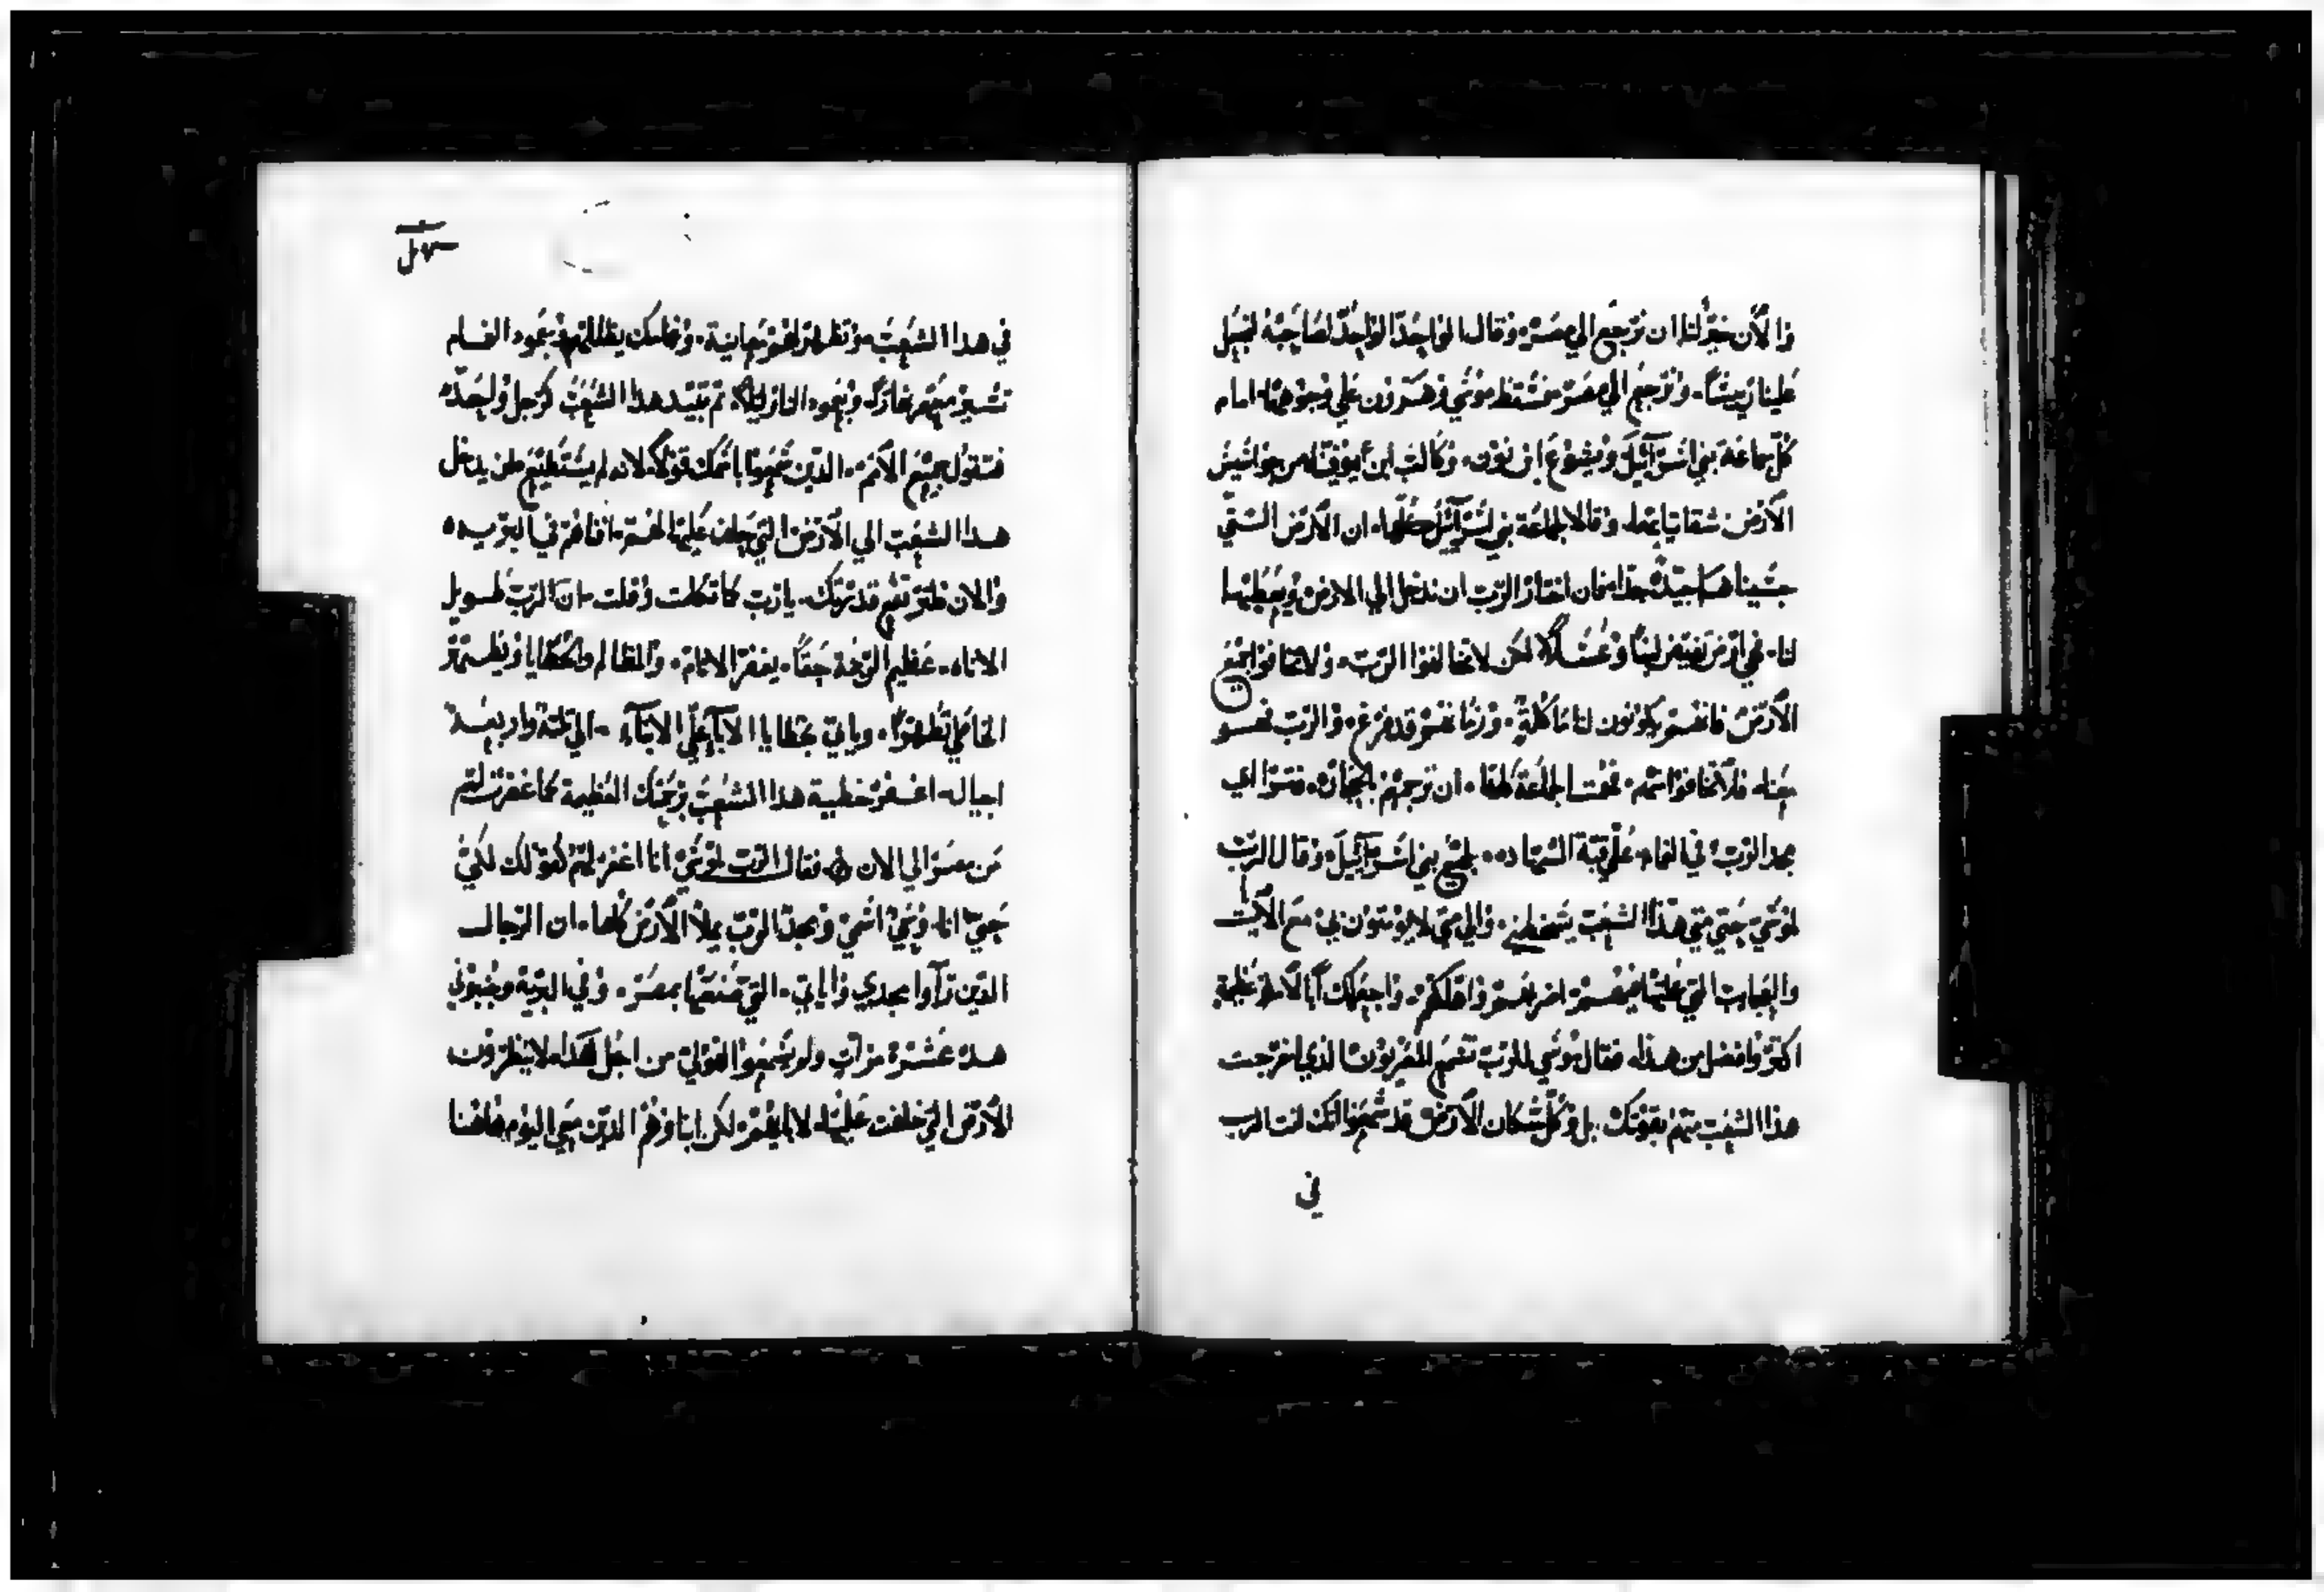 والآن خير لنا ان نرجع الي مصر وقال الواحد الواحد لصاحبه لنجعل
علينا ريسًا ونرجع الي مصر فسقط موسي وهرون علي وجوههما امام
كل جماعة بني اسرآئيل ويشوع ابن نون وكالب ابن يوفنا من جواسيس
الأرض شقا ثيابهما وقالا لجماعة بني اسرآئيل كلها ان الأرض التي
جسيناها جيده جدا فان اختار الرب ان ندخل الي الارض ويعطيها
لنا فهي ارض تفيض لبنًا وعسلًا لكن لا تخالفوا الرب ولا تخافوا جمع
الأرض فانهم يكونون لنا مأكلة وزمانهم قد فرغ والرب فهو
معنا فلا تخافوا منهم فهمت الجماعة كلها ان ترجمهم بالحجاره فترااي
مجد الرب في الغمام علي قبة الشهاده لجميع بني اسرآئيل وقال الرب
لموسي حتي متي هذا الشعب يسخطني والي متي لا يومنون بي مع الآيات
والعجايب التي عملتها فيهم اضربهم واهلكهم واجعلك أبًا لأمة عظيمة
اكثر وافضل من هذه فقال موسي للرب تسمع المصريون الذي اخرجت
هذا الشعب منهم بقوتك بل وكل سكان الأرض قد سمعوا انك انت الرب
في
في هذا الشعب وتظهر لهم معاينة وغمامك يظللهم وبعمود الغمام
تسير معهم نهارًا وبعمود النار ليلًا ثم تبيد هذا الشعب كرجل واحد
فتقول جميع الأمم الذين سمعوا باسمك قولًا لانه لم يستطيع ان يدخل
هذا الشعب الي الأرض التي حلف عليها لهم افناهم في البريه
والان فلترتفع قدرتك يارب كما تكلمت وقلت ان الرب طويل
الاناه عظيم الرحمة حقًا يغفر الاثام والمظالم والخطايا ويطهر
الخاطي تطهيرًا وياتي بخطايا الآبآء علي الابنآء الي ثلثة واربعة
اجيال اغفر خطية هذا الشعب برحمتك العظيمة كما غفرت لهم
من مصر الي الان فقال الرب لموسي انا اغفر لهم كقولك لكني
حي انا وحي اسمي ومجد الرب يملأ الأرض كلها ان الرجال
الذين رآوا مجدي واياتي التي صنعتها بمصر وفي البرية وجربوني
هذه عشرة مرات ولم يسمعوا لقولي من اجل هذا لا ينظرون
الأرض التي حلفت عليها لابايهم لكن ابناوهم الذين معي اليوم هاهنا